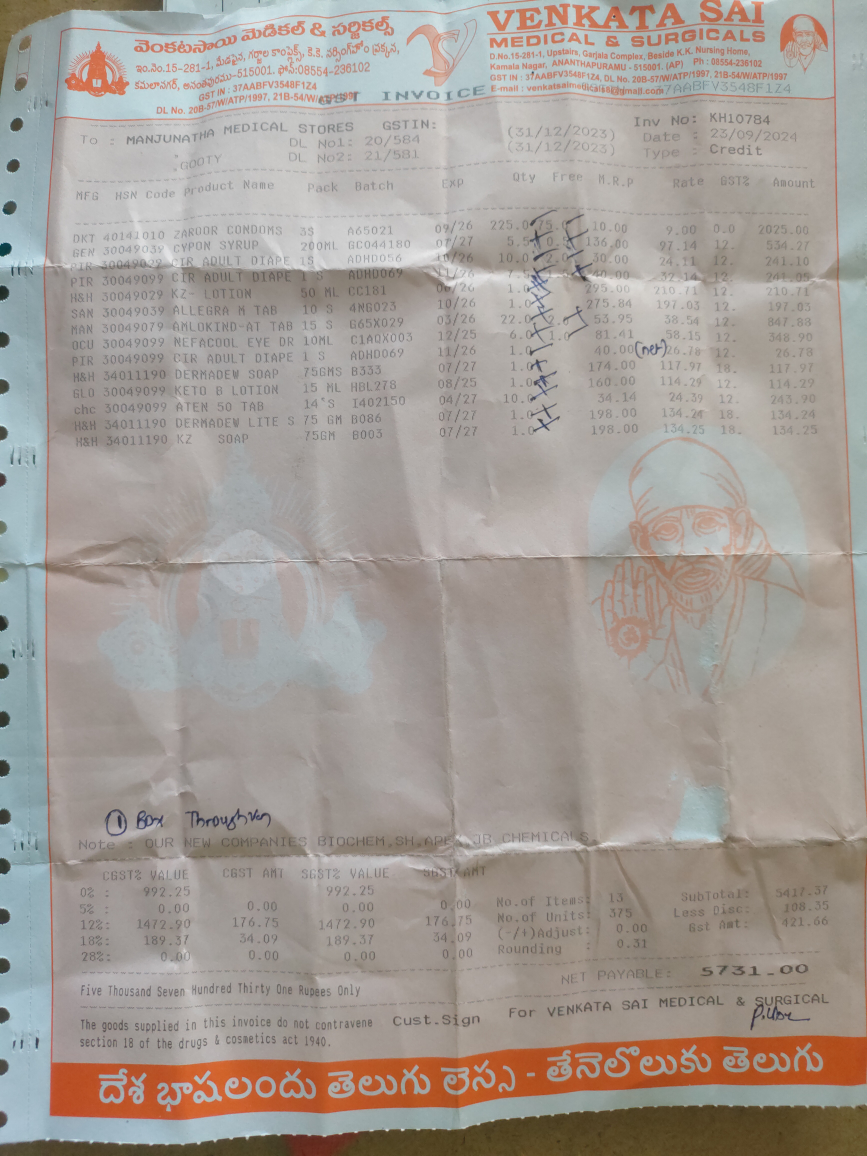 వెంకటసాయి మెడికల్ & సర్జికల్స్
ఇం.నెం.15-281-1, మేడపైన, గర్జాల కాంప్లెక్స్, కె.కె. నర్సింగ్‌హోం ప్రక్కన,
కమలానగర్, అనంతపురము-515001. ఫోన్:08554-236102
GST IN : 37AABFV3548F1Z4
DL No. 20B-57/W/ATP/1997, 21B-54/W/ATP/1997
VENKATA SAI
MEDICAL & SURGICALS
D.No.15-281-1, Upstairs, Garjala Complex, Beside K.K. Nursing Home,
Kamala Nagar, ANANTHAPURAMU - 515001. (AP) Ph : 08554-236102
GST IN : 37AABFV3548F1Z4, DL No. 20B-57/W/ATP/1997, 21B-54/W/ATP/1997
E-mail : venkatasaimedicals@gmail.com 37AABFV3548F1Z4
GST INVOICE
To : MANJUNATHA MEDICAL STORES GSTIN:
GOOTY
DL No1: 20/584 (31/12/2023)
DL No2: 21/581 (31/12/2023)
Inv No: KH10784
Date : 23/09/2024
Type : Credit
MFG HSN Code Product Name Pack Batch EXP Qty Free M.R.P Rate GST% Amount
DKT 40141010 ZAROOR CONDOMS 3S A65021 09/26 225.0 75.0 10.00 9.00 0.0 2025.00
GEN 30049039 CYPON SYRUP 200ML GC044180 07/27 5.5 0.5 136.00 97.14 12. 534.27
PIR 30049029 CIR ADULT DIAPE 1 S ADHD056 10/26 10.0 2.0 30.00 24.11 12. 241.10
PIR 30049099 CIR ADULT DIAPE 1 S ADHD069 11/26 7.5 40.00 32.14 12. 241.05
H&H 30049029 KZ- LOTION 50 ML CC181 06/26 1.0 295.00 210.71 12. 210.71
SAN 30049039 ALLEGRA M TAB 10 S 4NG023 10/26 1.0 275.84 197.03 12. 197.03
MAN 30049079 AMLOKIND-AT TAB 15 S G65X029 03/26 22.0 2.0 53.95 38.54 12. 847.88
OCU 30049099 NEFACOOL EYE DR 10ML C1AQX003 12/25 6.0 1.0 81.41 58.15 12. 348.90
PIR 30049099 CIR ADULT DIAPE 1 S ADHD069 11/26 1.0 40.00 (net) 26.78 12. 26.78
H&H 34011190 DERMADEW SOAP 75GMS B333 07/27 1.0 174.00 117.97 18. 117.97
GLO 30049099 KETO B LOTION 15 ML HBL278 08/25 1.0 160.00 114.29 12. 114.29
chc 30049099 ATEN 50 TAB 14'S I402150 04/27 10.0 34.14 24.39 12. 243.90
H&H 34011190 DERMADEW LITE S 75 GM B086 07/27 1.0 198.00 134.24 18. 134.24
H&H 34011190 KZ SOAP 75GM B003 07/27 1.0 198.00 134.25 18. 134.25
① Box
Note : OUR NEW COMPANIES BIOCHEM,SH,APEX,JB CHEMICALS,
CGST% VALUE CGST AMT SGST% VALUE SGST AMT
0% : 992.25 992.25
5% : 0.00 0.00 0.00 0.00
12%: 1472.90 176.75 1472.90 176.75
18%: 189.37 34.09 189.37 34.09
28%: 0.00 0.00 0.00 0.00
No.of Items: 13
No.of Units: 375
(-/+)Adjust: 0.00
Rounding : 0.31
SubTotal: 5417.37
Less Disc: 108.35
Gst Amt: 421.66
NET PAYABLE: 5731.00
Five Thousand Seven Hundred Thirty One Rupees Only
The goods supplied in this invoice do not contravene
section 18 of the drugs & cosmetics act 1940.
Cust.Sign
For VENKATA SAI MEDICAL & SURGICAL
దేశ భాషలందు తెలుగు లెస్స - తేనెలొలుకు తెలుగు